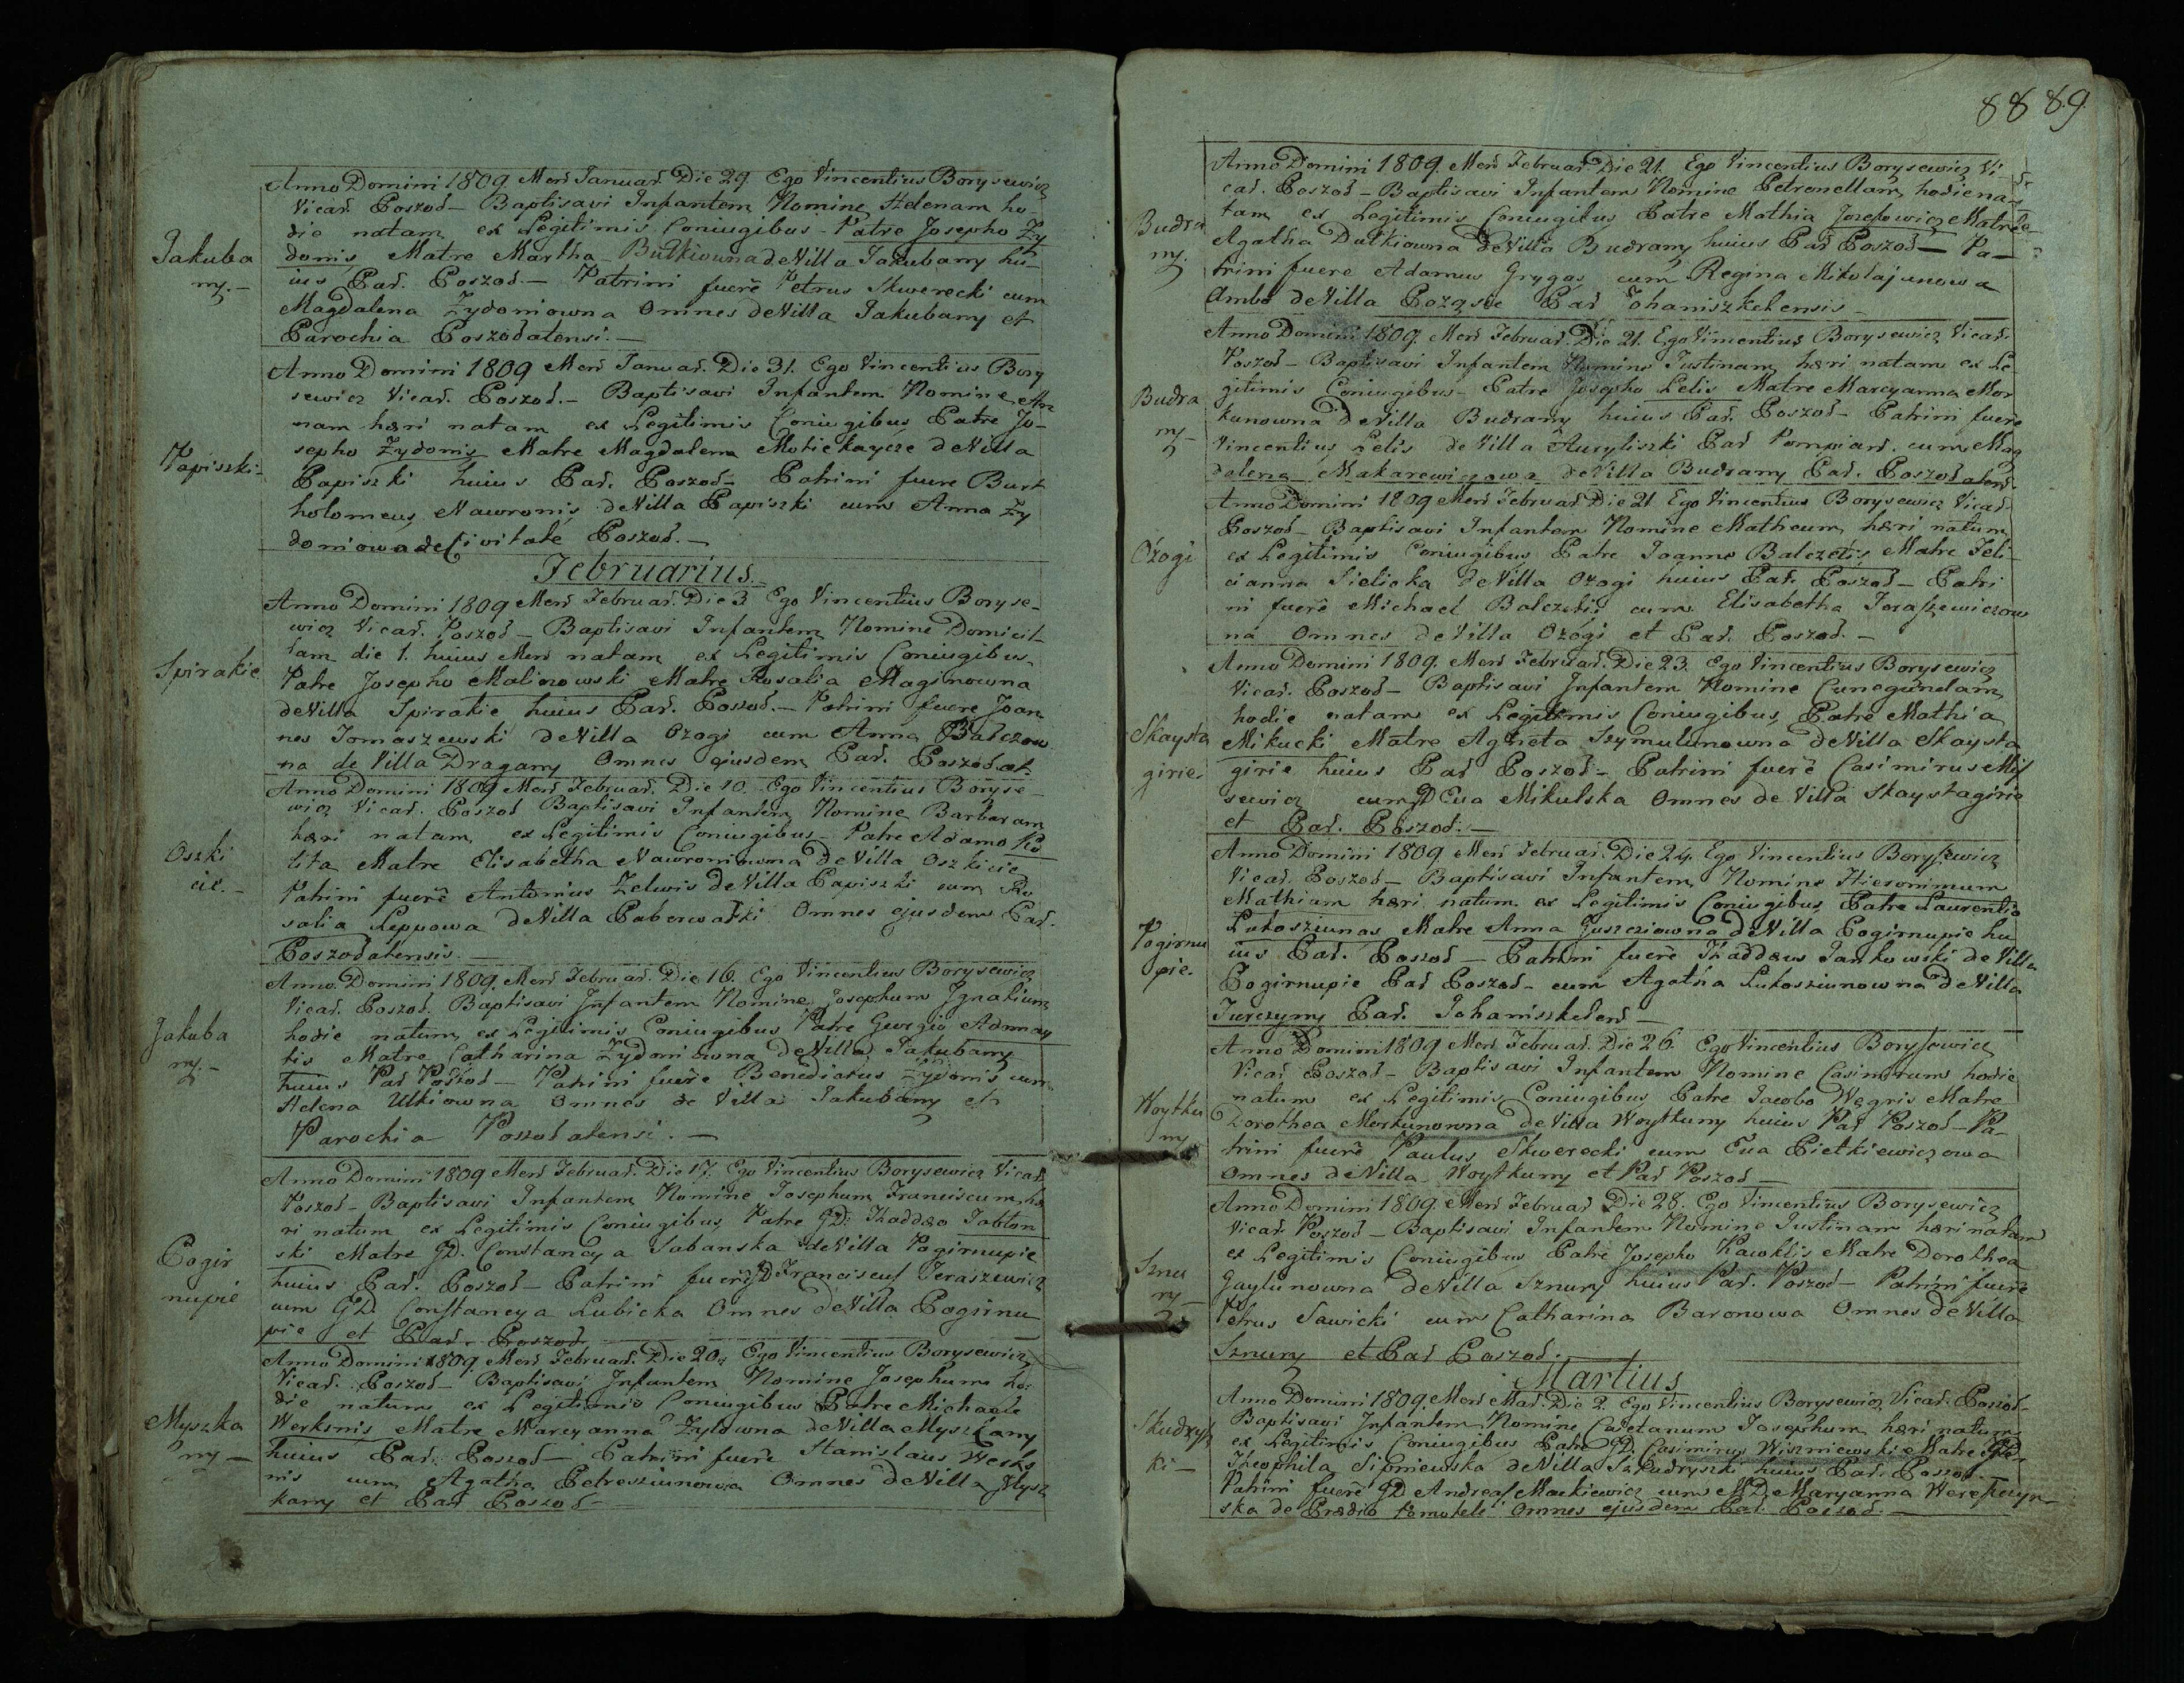 Jakuba
ny.-
Anno Domini 1809. Mens Januar. Die 29. Ego Vincentius Borysewicz
Vicar. Poszod- Baptisavi Infantem Nomine Helenam ho-
die natam ex Legitimis Coniugibus - Patre Josepho Zy
donis, Matre Martha Butkiowna de Villa Jakubany hu-
ius Par. Poszod.- Patrini fuere Petrus Skwerecki cum
Magdalena Zydoniowna Omnes de Villa Jakubany et
Parochia Poszodatensi.-
Papiszki-
Anno Domini 1809 Mens Januar. Die 31. Ego Vincentius Bory
sewicz Vicar. Poszod.- Baptisavi Infantem Nomine An
nam hæri natam ex Legitimis Coniugibus Patre Jo-
sepho Zydonis Matre Magdalena Motiekaycze de Villa
Papiszki huius Par. Poszod- Patrini fuere Bart
holomeus Nawronis de Villa Papiszki cum Anna Zy
doniowa de Civitate Poszod.-
Februarius.
Spirakie
Anno Domini 1809 Mens Februar. Die 3 Ego Vincentius Boryse-
wicz Vicar. Poszod- Baptisavi Infantem Nomine Domicil-
lam die 1. huius Mens natam ex Legitimis Coniugibus,
Patre Josepho Malinowski Matre Rosalia Maginowna
de Villa Spirakie huius Par. Poszod.- Patrini fuere Joan
nes Tomaszewski de Villa Ozogi cum Anna Balczow
na de Villa Dragany Omnes ejusdem Par. Poszodat.
Oszki
cie.-
Anno Domini 1809 Mens Februar. Die 10. Ego Vincentius Boryse-
wicz Vicar. Poszod Baptisavi Infantem Nomine Barbaram
hæri natam ex Legitimis Coniugibus- Patre Adamo Ko
lita Matre Elisabetha Nawroniowna de Villa Oszkicie
Patrini fuerê Antonius Zelwis de Villa Papiszki cum Ro
salia Leppowa de Villa Omnes ejusdem Par.
Poszodatensis.-
Jakuba
ny.-
Anno Domini 1809. Mens Februar. Die 16. Ego Vincentius Borysewicz
Vicar. Poszod. Baptisavi Infantem Nomine Josephum Ignatium
hodie natum ex Legitimis Coniugibus Patre Georgio Adomay
tis Matre Catharina Zydoniowna de Villa Jakubany
huius Par Poszod- Patrini fuere Benedictus Zydonis cum
Helena Utkiowna Omnes de Villa Jakubany et
Parochia Poszodatensi.-
Pogir
nupie
Anno Domini 1809 Mens Februar. Die 17. Ego Vincentius Borysewicz Vicar.
Poszod- Baptisavi Infantem Nomine Josephum Franciscum hæ
ri natum ex Legitimis Coniugibus Patre GD: Thaddæo Jablon
ski Matre GD. Constancya Sabanska de Villa Pogirnupie
huius Par. Poszod- Patrini fuere GD Franciscus Jeraszewicz
cum GD. Constancya Lubicka Omnes de Villa Pogirnu
pie et Par. Poszod
Myszka
ny-
Anno Domini 1809 Mens Februar. Die 20. Ego Vincentius Borysewicz
Vicar. Poszod- Baptisavi Infantem Nomine Josephum ho-
die natum ex Legitimis Coniugibus Patre Michaele
Werksnis Matre Marcyanna Zylowna de Villa Myszkany
huius Par. Poszod- Patrini fuere Stanislaus Werks
nis cum Agatha Petresziunowa Omnes de Villa Mysz
kany et Par Poszod-
88 89.
Budra
ny.
Anno Domini 1809. Mens Februar. Die 21. Ego Vincentius Borysewicz Vi-
car. Poszod- Baptisavi Infantem Nomine Petronellam, hodie na-
tam ex Legitimis Coniugibus Patre Mathia Josefowicz Matre
Agatha Dutkiowna de Villa Budrany huius Par Poszod- Pa-
trini fuere Adamus Grygas cum Regina Mikolajunowa
Ambo de Villa Par Johaniszkelensis-
Budra
ny-
Anno Domini 1809. Mens Februar. Die 21. Ego Vincentius Borysewicz Vicar.
Poszod- Baptisavi Infantem Nomine Justinam hæri natam ex Le-
gitimis Coniugibus- Patre Josepho Lelis Matre Marcyanna Mor
kunowna de Villa Budrany huius Par. Poszod- Patrini fuere
Vincentius Lelis de Villa Auryliszki Par Pompian. cum Mag
dalena Makarewiczowa de Villa Budrany Par. Poszodatens.
Ozogi
Anno Domini 1809 Mens Februar. Die 21 Ego Vincentius Borysewicz Vicar.
Poszod- Baptisavi Infantem Nomine Matheum hæri natum
ex Legitimis Coniugibus Patre Joanne Balczetis Matre Feli
cianna Sielicka de Villa Ozogi huius Par. Poszod- Patri
ni fuerê Michael Balczetis cum Elisabetha Jeraszewiczow
na Omnes de Villa Ozogi et Par. Poszod.-
Skaysta
girie.
Anno Domini 1809. Mens Februar. Die 23. Ego Vincentius Borysewicz
Vicar. Poszod- Baptisavi Infantem Nomine Cunegundam,
hodie natam ex Legitimis Coniugibus Patre Mathia
Mikucki Matre Agnieta Szymulunowna de Villa Skaysta
girie huius Par Poszod- Patrini fuerê Casimirus Mis
sewicz cum GD Eva Mikulska Omnes de Villa Skaystagirie
et Par. Poszod.-
Pogirnu
pie.
Anno Domini 1809 Mens Februar. Die 24. Ego Vincentius Borysewicz
Vicar. Poszod- Baptisavi Infantem Nomine Hieronimum
Mathiam hæri natum ex Legitimis Coniugibus Patre Laurentio
Lukosziunas Matre Anna Juszciowna de Villa Pogirnupie hu
ius Par. Poszod- Patrini fuerê Thaddæus Jankowski de Villa
Pogirnupie Par Poszod- cum Agatha Lukosziunowna de Villa
Jurczyny Par. Johaniszkelens-
Woytku
ny-
Anno Domini 1809 Mens Februar. Die 26. Ego Vincentius Borysewicz
Vicar Poszod- Baptisavi Infantem Nomine Casimirum hodie
natum ex Legitimis Coniugibus Patre Jacobo Wegris Matre
Dorothea Morkunowna de Villa Woytkuny huius Par Poszod- Pa-
trini fuerê Paulus Skwerecki cum Eva Pietkiewiczowa
Omnes de Villa Woytkuny et Par Poszod-
Sznu
ry-
Anno Domini 1809. Mens Februar Die 28. Ego Vincentius Borysewicz
Vicar. Poszod- Baptisavi Infantem Nomine Justinam hæri natam
ex Legitimis Coniugibus Patre Josepho Kawklis Matre Dorothea
Gaylunowna de Villa Sznury huius Par. Poszod- Patrini fuerê
Petrus Sawicki cum Catharina Baronowa Omnes de Villa
Sznury et Par Poszod.-
Martius
Skudrysz
ki-
Anno Domini 1809. Mens Mar. Die 2. Ego Vincentius Borysewicz Vicar. Poszod-
Baptisavi Infantem Nomine Cajetanum Josephum hæri natum
ex Legitimis Coniugibus Patre GD. Casimirus Wiszniewski Matre GD.
Theophila Sipniewska de Villa Szkudryszki huius Par. Poszod-
Patrini fuere GD Andreas Mackiewicz cum MD. Maryanna Wereszczyn-
ska de Prædio Omnes ejusdem Par. Poszod.-